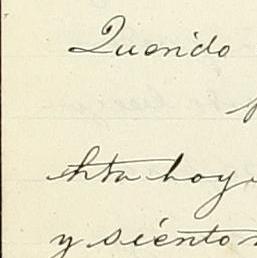 Querido
hta hoy
y siento